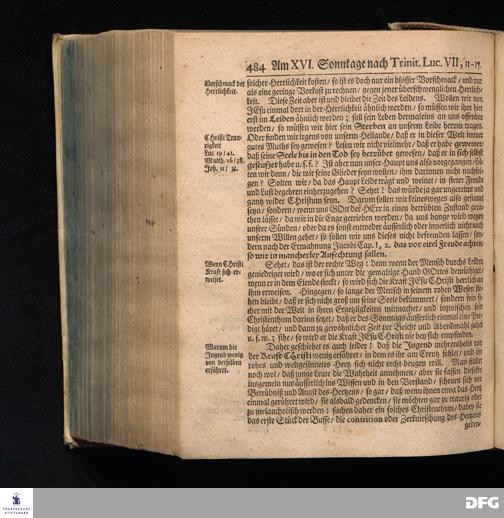 484 Am XVI. Sonntage nach Trinit. Luc. VII, 11-17.
Vorschmack der Herrlichkeit.
solcher Herrlichkeit kosten/ so ist es doch nur ein blosser Vorschmack/ und nur
als eine geringe Vorkost zu rechnen/ gegen jener überschwenglichen Herrlich-
keit. Diese Zeit aber ist und bleibet die Zeit des Leidens. Wollen wir nun
JEsu einmal dort in der Herrlichkeit ähnlich werden/ so müssen wir ihm hier
erst im Leiden ähnlich werden; soll sein Leben dermaleins an uns offenbar
werden/ so müssen wir hier sein Sterben an unserm Leibe herum tragen.
Christi Trau-
rigkeit
Luc. 19/ 41.
Matth. 26/ 38.
Joh. 11/
Oder finden wir irgens von unserm Heilande/ daß er in dieser Welt immer
gutes Muths sey gewesen? Lesen wir nicht vielmehr/ daß er habe geweinet
daß seine Seele bis in den Tod sey betrübet gewesen/ daß er in sich selbst
geseufzet habe u. s. f.? Ist aber nun unser Haupt uns also vorgegangen/ sol-
len wir denn/ die wir seine Glieder seyn wollen/ ihm darinnen nicht nachfol-
gen? Solten wir/ da das Haupt Leid trägt und weinet/ in steter Freude
und Lust begehren einherzugehen? Sehet! das würde ja gar ungereimt und
gantz wider Christum seyn. Darum sollen wir keinesweges also gesinnet
seyn/ sondern/ wenn uns GOtt der HErr in einen betrübten Zustand gera-
then lässet/ da wir in die Enge getrieben werden/ da uns bange wird wegen
unser Sünden/ oder da es sonst entweder äusserlich oder innerlich nicht nach
unserm Willen gehet/ so sollen wir uns dieses nicht befremden lassen/ son-
dern nach der Ermahnung Jacobi Cap. 1, 2. das vor eitel Freude achten/
so wir in mancherley Anfechtung fallen.
Wenn Christi
Kraft sich er-
weiset.
Sehet/ das ist der rechte Weg: denn wenn der Mensch durchs Leiden
geniedriget wird/ wo er sich unter die gewaltige Hand GOttes demüthiget/
wenn er in dem Elende stecket/ so wird sich die Kraft JEsu Christi herrlich an
ihm erweisen. Hingegen/ so lange der Mensch in seinem rohen Wesen ste-
hen bleibt/ daß er sich nicht groß um seine Seele bekümmert/ sondern sein si-
cher mit der Welt in ihren Ergetzlichkeiten mitmachet/ und inzwischen sein
Christenthum darinn setzet/ daß er des Sonntags äusserlich einmal eine Pre-
digt höret/ und dann zu gewöhnlicher Zeit zur Beicht und Abendmahl gehet
u. s. w.; sihe/ so wird er die Kraft JEsu Christi nie bey sich empfinden.
Warum die
Jugend wenig
von derselben
erfähret.
Daher geschiehet es auch leider! daß die Jugend mehrentheils von
der Kraft Christi wenig erfähret/ in dem es ihr am Creutz fehlet/ und ihr
rohes und weltgesinnetes Hertz sich nicht recht beugen will. Man findet
noch wol/ daß junge Leute die Wahrheit annehmen/ aber sie fassen dieselbe
insgemein nur äusserlich ins Wissen und in den Verstand/ scheuen sich vor
Betrübniß und Angst des Hertzens/ so gar/ daß wenn ihnen etwa das Hertz
einmal gerühret wird/ sie alsbald gedencken/ sie möchten gar zu traurig oder
zu melancholisch werden: suchen daher ein solches Christenthum/ dabey sie
das erste Stück der Busse/ die contrition oder Zerknirschung des Hertzens
FRANCKESCHE
STIFTUNGEN
DFG